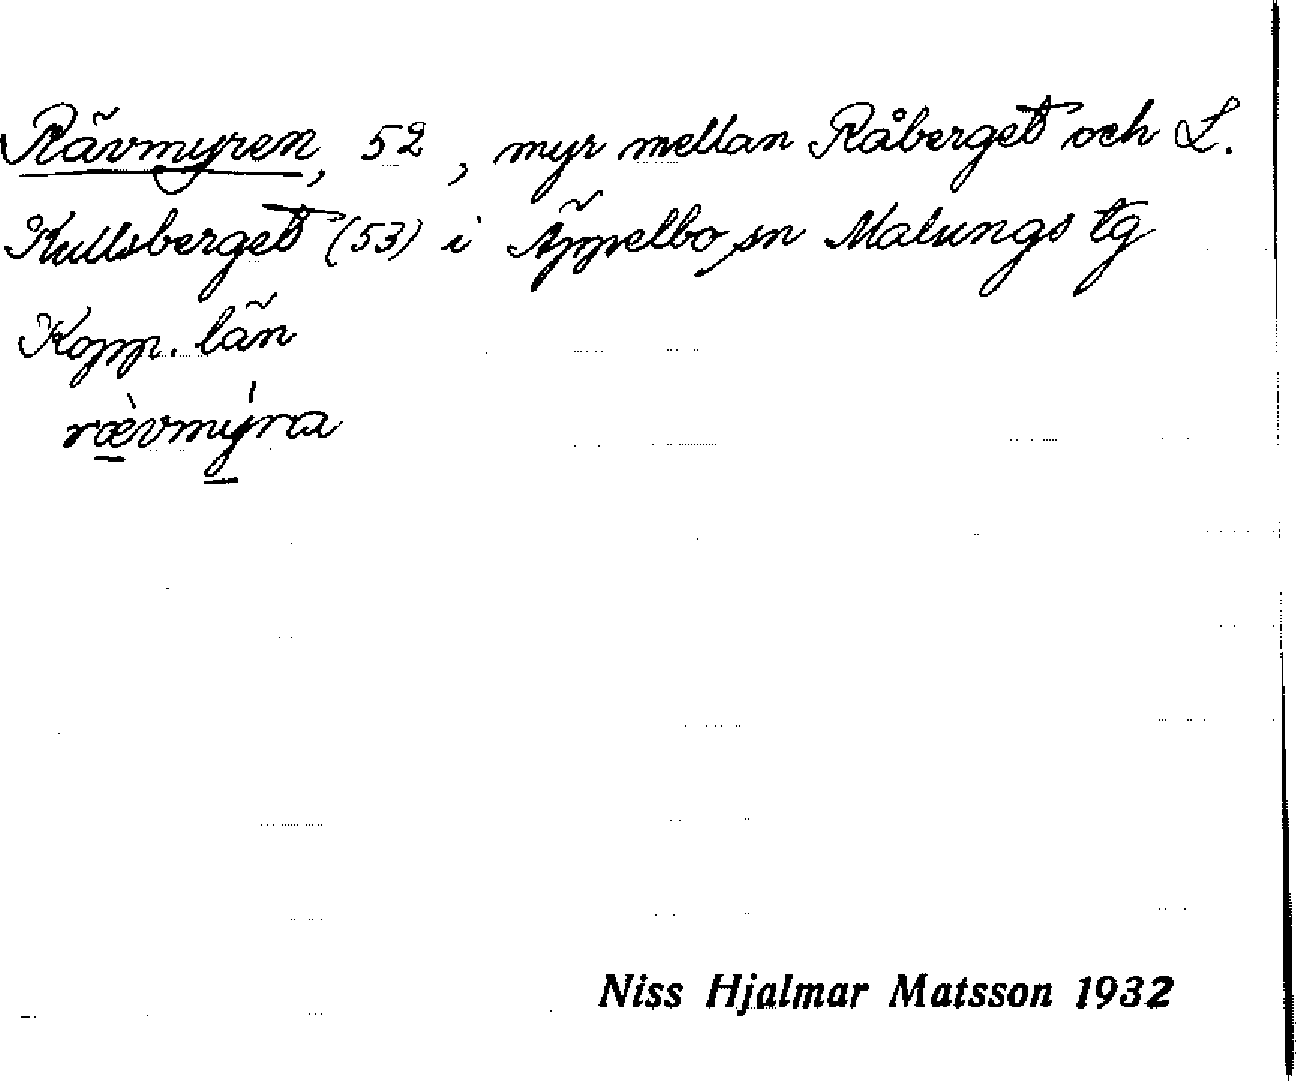 Rävmyren, 52, myr mellan Råberget och L.
Kullsberget (53) i Äppelbo sn Malungs tg
Kopp. län
ræ̀vmýra
Niss Hjalmar Matsson 1932